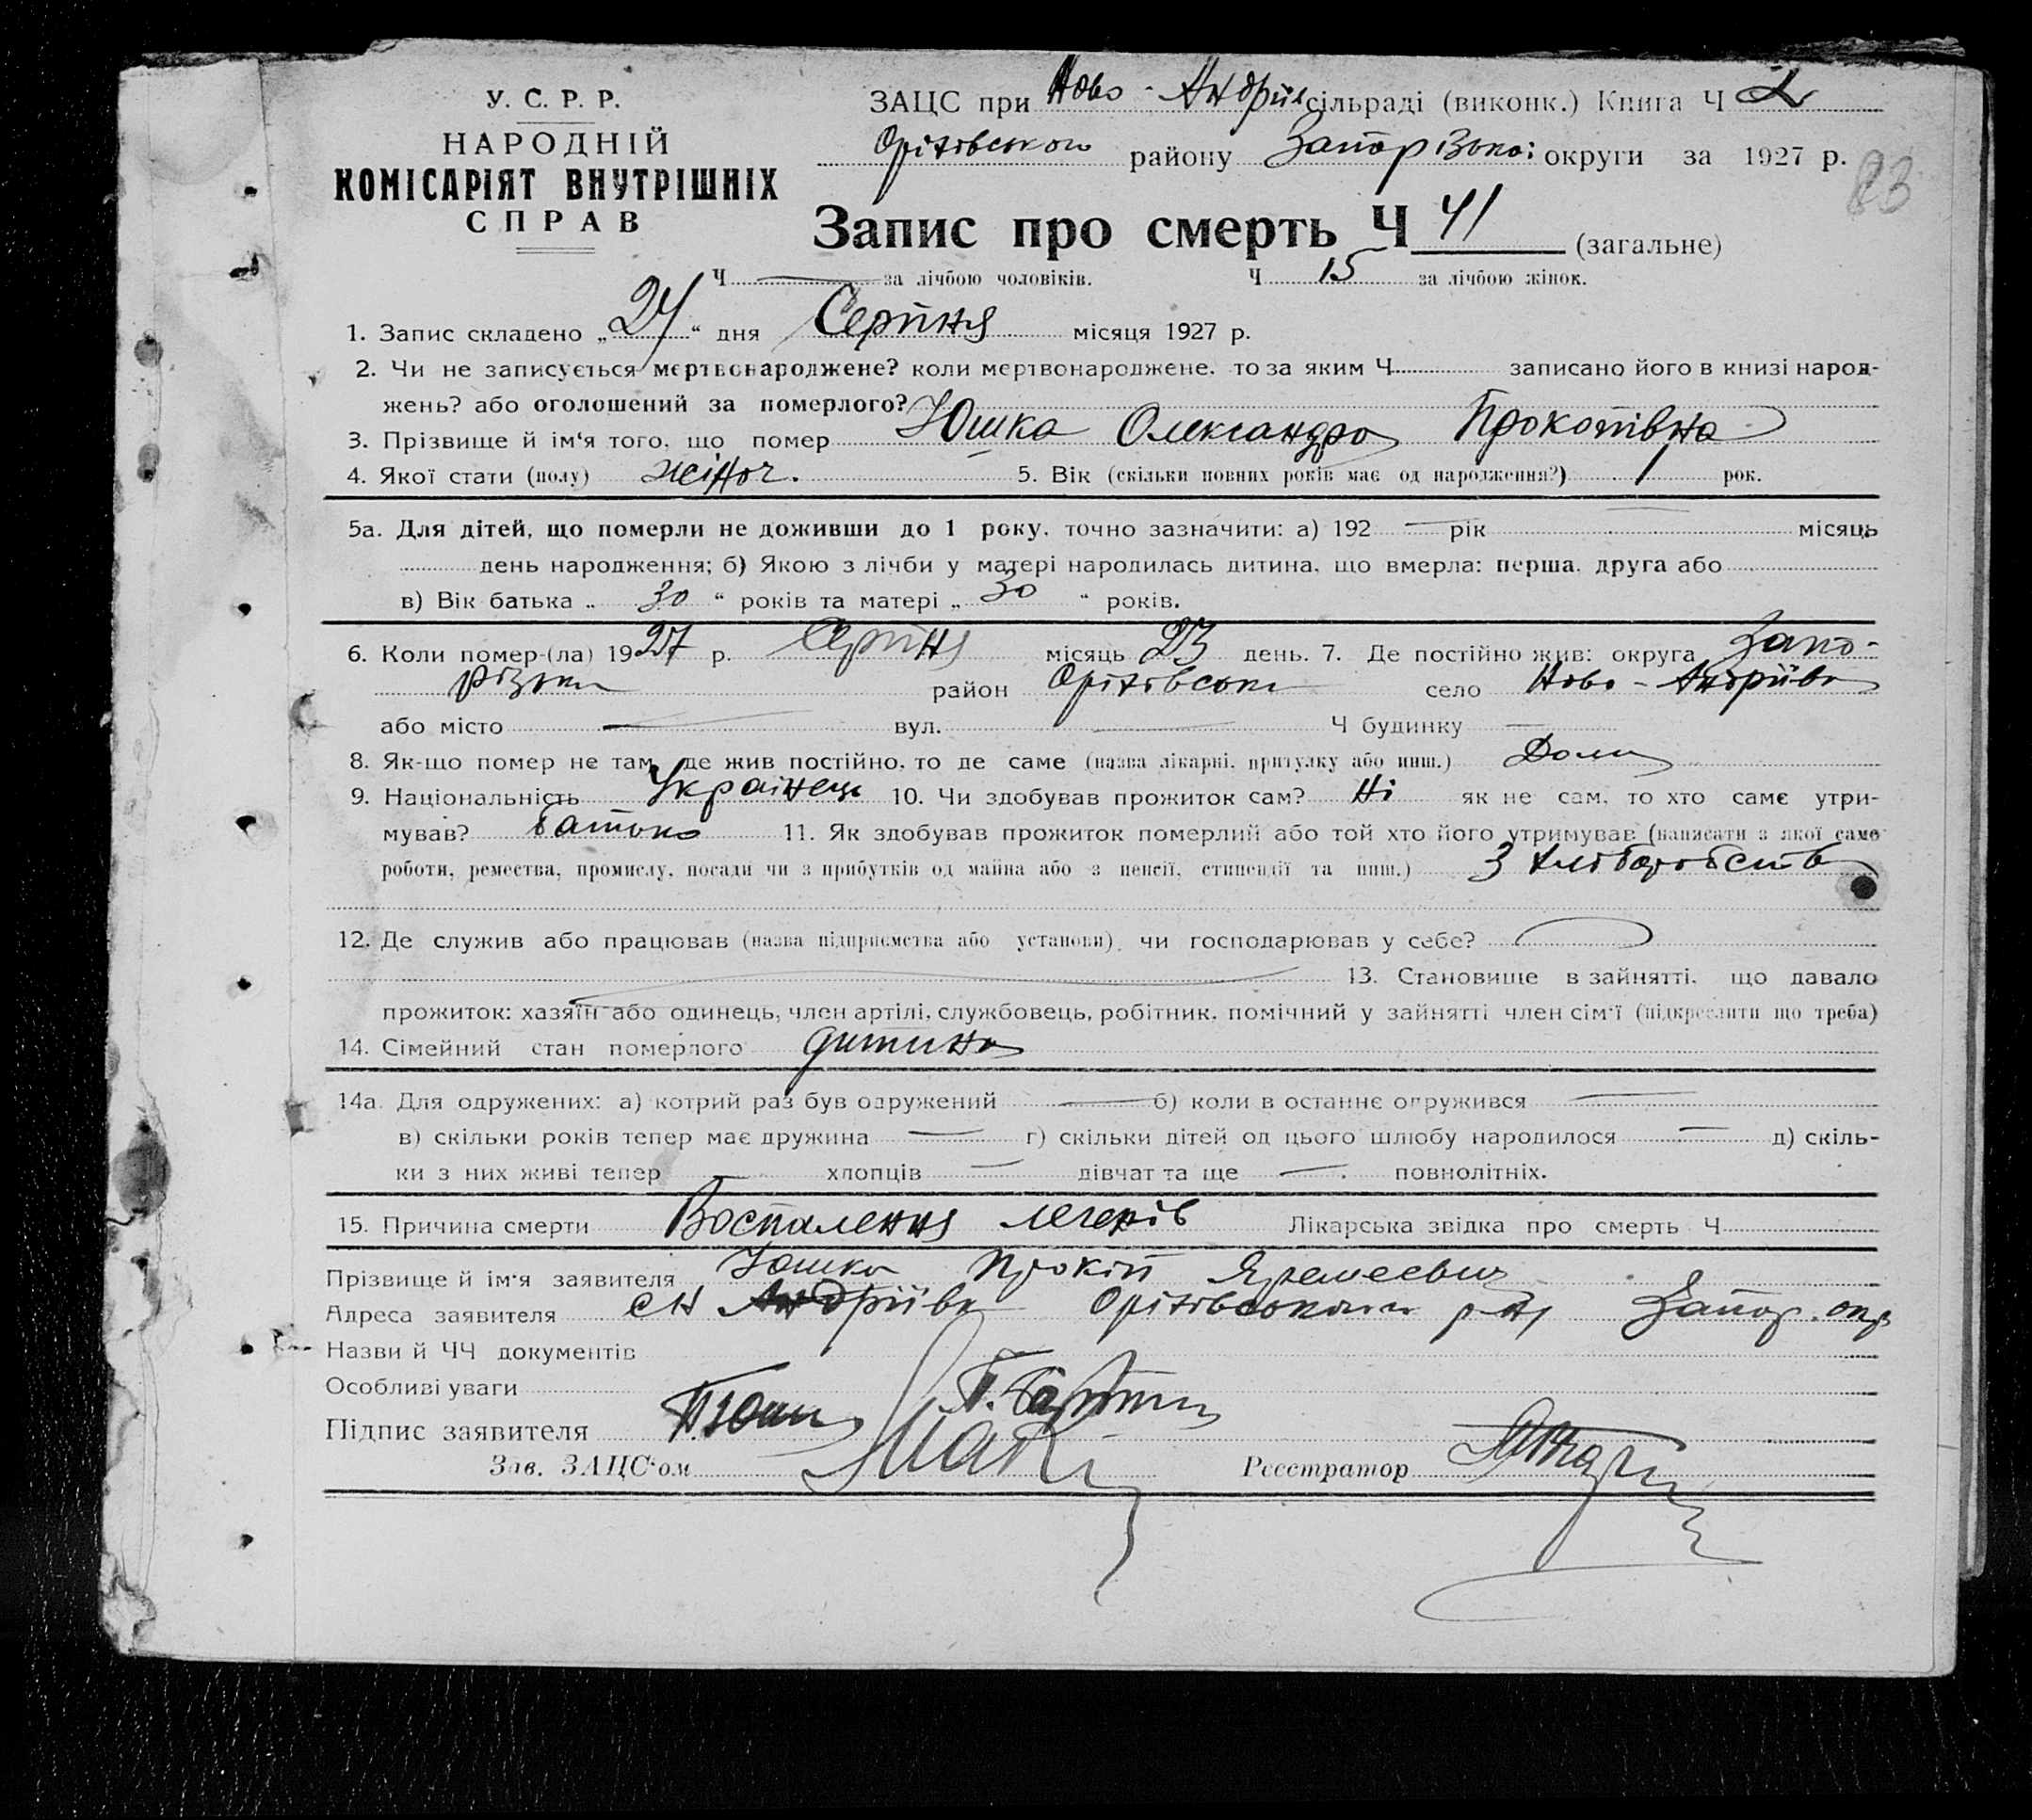 У. С. Р. Р.
НАРОДНІЙ
КОМІСАРІЯТ ВНУТРІШНІХ
СПРАВ
ЗАЦС при Ново-Андріїв сільраді (виконк.) Книга Ч 2
Оріхівського району Запорізької округи за 1927 р.
83
Запис про смерть Ч 41 (загальне)
Ч — за лічбою чоловіків. Ч 15 за лічбою жінок.
1. Запис складено „24“ дня Серпня місяця 1927 р.
2. Чи не записується мертвонароджене? коли мертвонароджене, то за яким Ч записано його в книзі народ-
жень? або оголошений за померлого?
3. Прізвище й ім'я того, що помер Юшка Олександра Прокопівна
4. Якої стати (полу) жіноч. 5. Вік (скільки повних років має од народження?) 1 рок.
5а. Для дітей, що померли не доживши до 1 року, точно зазначити: а) 192 — рік — місяць
день народження; б) Якою з лічби у матері народилась дитина, що вмерла: перша, друга або
в) Вік батька „ 30 “ років та матері „ 30 “ років.
6. Коли помер-(ла) 1927 р. Серпня місяць 23 день. 7. Де постійно жив: округа Запо-
різька район Оріхівськи село Ново-Андріївка
або місто — вул. — Ч будинку —
8. Як-що помер не там, де жив постійно, то де саме (назва лікарні, притулку або инш.) Дома
9. Національність Українець 10. Чи здобував прожиток сам? Ні як не сам, то хто саме утри-
мував? батько 11. Як здобував прожиток померлий або той хто його утримував (написати з якої саме
роботи, ремества, промислу, посади чи з прибутків од майна або з пенсії, стипендії та инш.) З хліборобств
12. Де служив або працював (назва підприємства або установи), чи господарював у себе?
13. Становище в зайнятті, що давало
прожиток: хазяїн або одинець, член артілі, службовець, робітник, помічний у зайнятті член сім'ї (підкреслити що треба)
14. Сімейний стан померлого дитина
14а. Для одружених: а) котрий раз був одружений — б) коли в останнє одружився —
в) скільки років тепер має дружина — г) скільки дітей од цього шлюбу народилося — д) скіль-
ки з них живі тепер — хлопців — дівчат та ще — повнолітніх.
15. Причина смерти Воспалення легенів Лікарська звідка про смерть Ч
Прізвище й ім'я заявителя Юшка Прокіп Яремеевич
Адреса заявителя с Н Андріївка Оріхівського р-н, Запор. окр
Назви й ЧЧ документів
Особливі уваги
Підпис заявителя П Юшка
Зав. ЗАЦС'ом Реєстратор